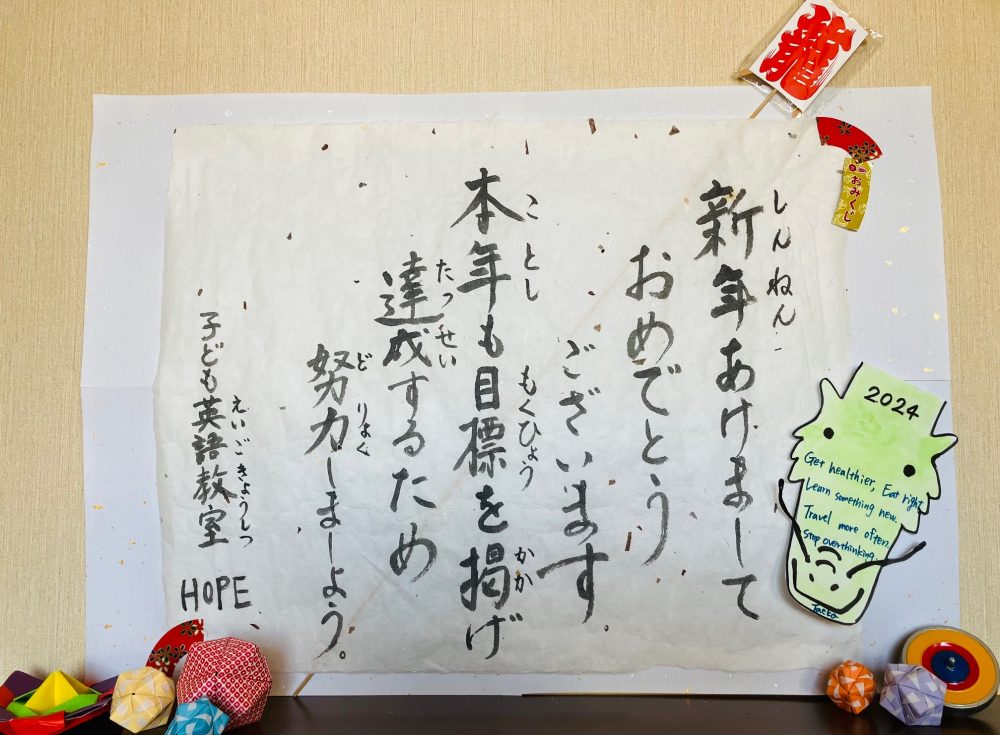 龍
おみくじ
しんねん
新年あけまして
おめでとう
ございます。
ことし
もくひょう
かか
本年も目標を掲げ
たっせい
達成するため
どりょく
努力しましょう。
えいごきょうしつ
子ども英語教室
HOPE
2024
Get healthier, Eat right
Learn something new.
Travel more often.
Stop overthinking.